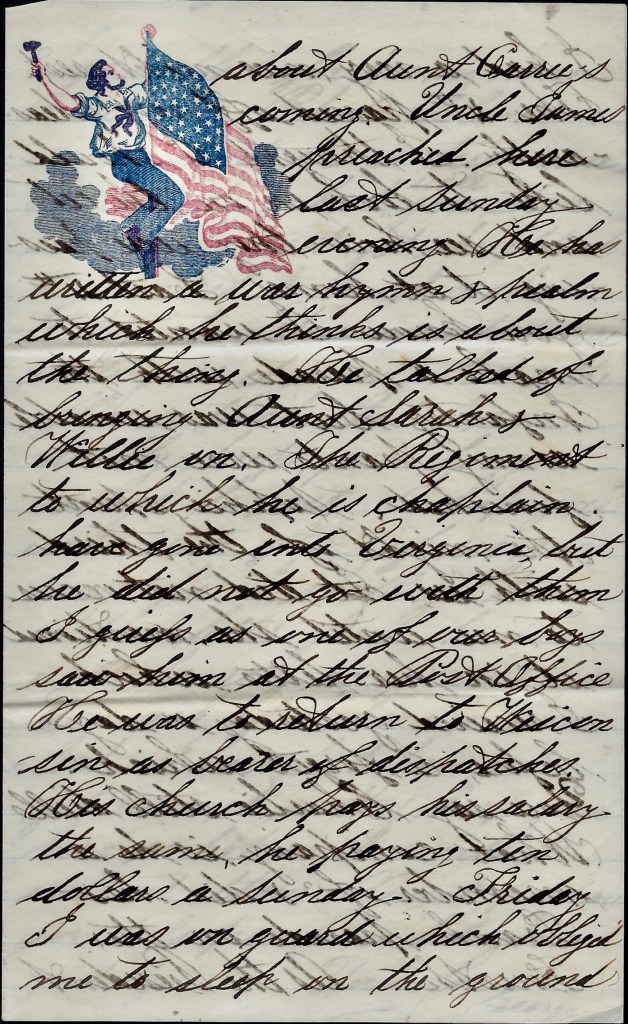 about Aunt Carrie's
coming. Uncle James
preached here
last Sunday
evening. He has
written a war hymn & psalm
which he thinks is about
the thing. He talked of
bringing Aunt Sarah &
Willie on. The Regiment
to which he is chaplain
have gone into Virginia, but
he did not go with them
I guess as one of our boys
saw him at the Post Office
He was to return to Wiscon
-sin as bearer of dispatches.
His church pays his salary
the same, he paying ten
dollars a Sunday. Friday
I was on guard which obliged
me to sleep on the ground